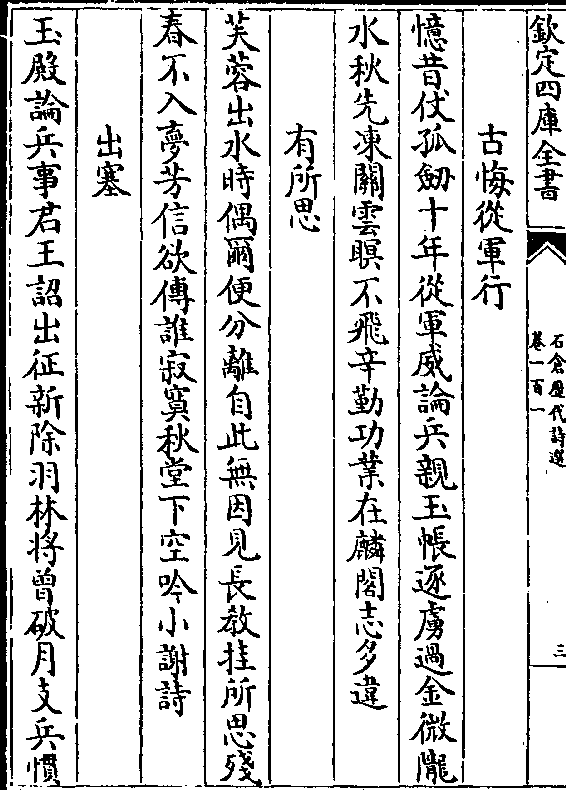 欽定四庫全書
石倉歷代詩選
卷一百一
三
古悔從軍行
憶昔仗孤劒十年從軍威論兵親玉帳逐虜過金微隴
水秋先凍關雲暝不飛辛勤功業在麟閣志多違
有所思
芙蓉出水時偶爾便分離自此無因見長教挂所思殘
春不入夢芳信欲傳誰寂寞秋堂下空吟小謝詩
出塞
玉殿論兵事君王詔出征新除羽林將曽破月支兵慣